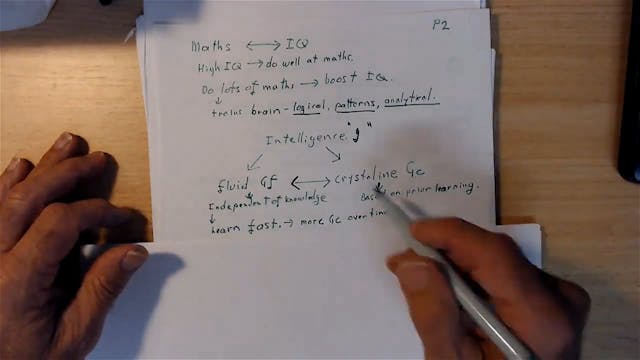 P2
Maths ⟷ IQ
High IQ → do well at maths.
Do lots of maths → boost IQ.
↓
trains brain - logical, patterns, analytical.
Intelligence "g"
fluid Gf ⟷ crystaline Gc
Independent of knowledge Based on prior learning.
↓
learn fast. → more Gc over time